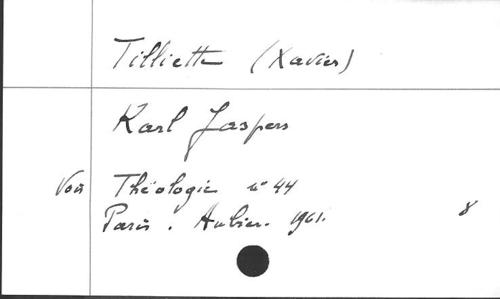 Tilliette (Xavier)
Karl Jaspers
Voir Théologie n° 44
Paris. Aubier. 1961. 8